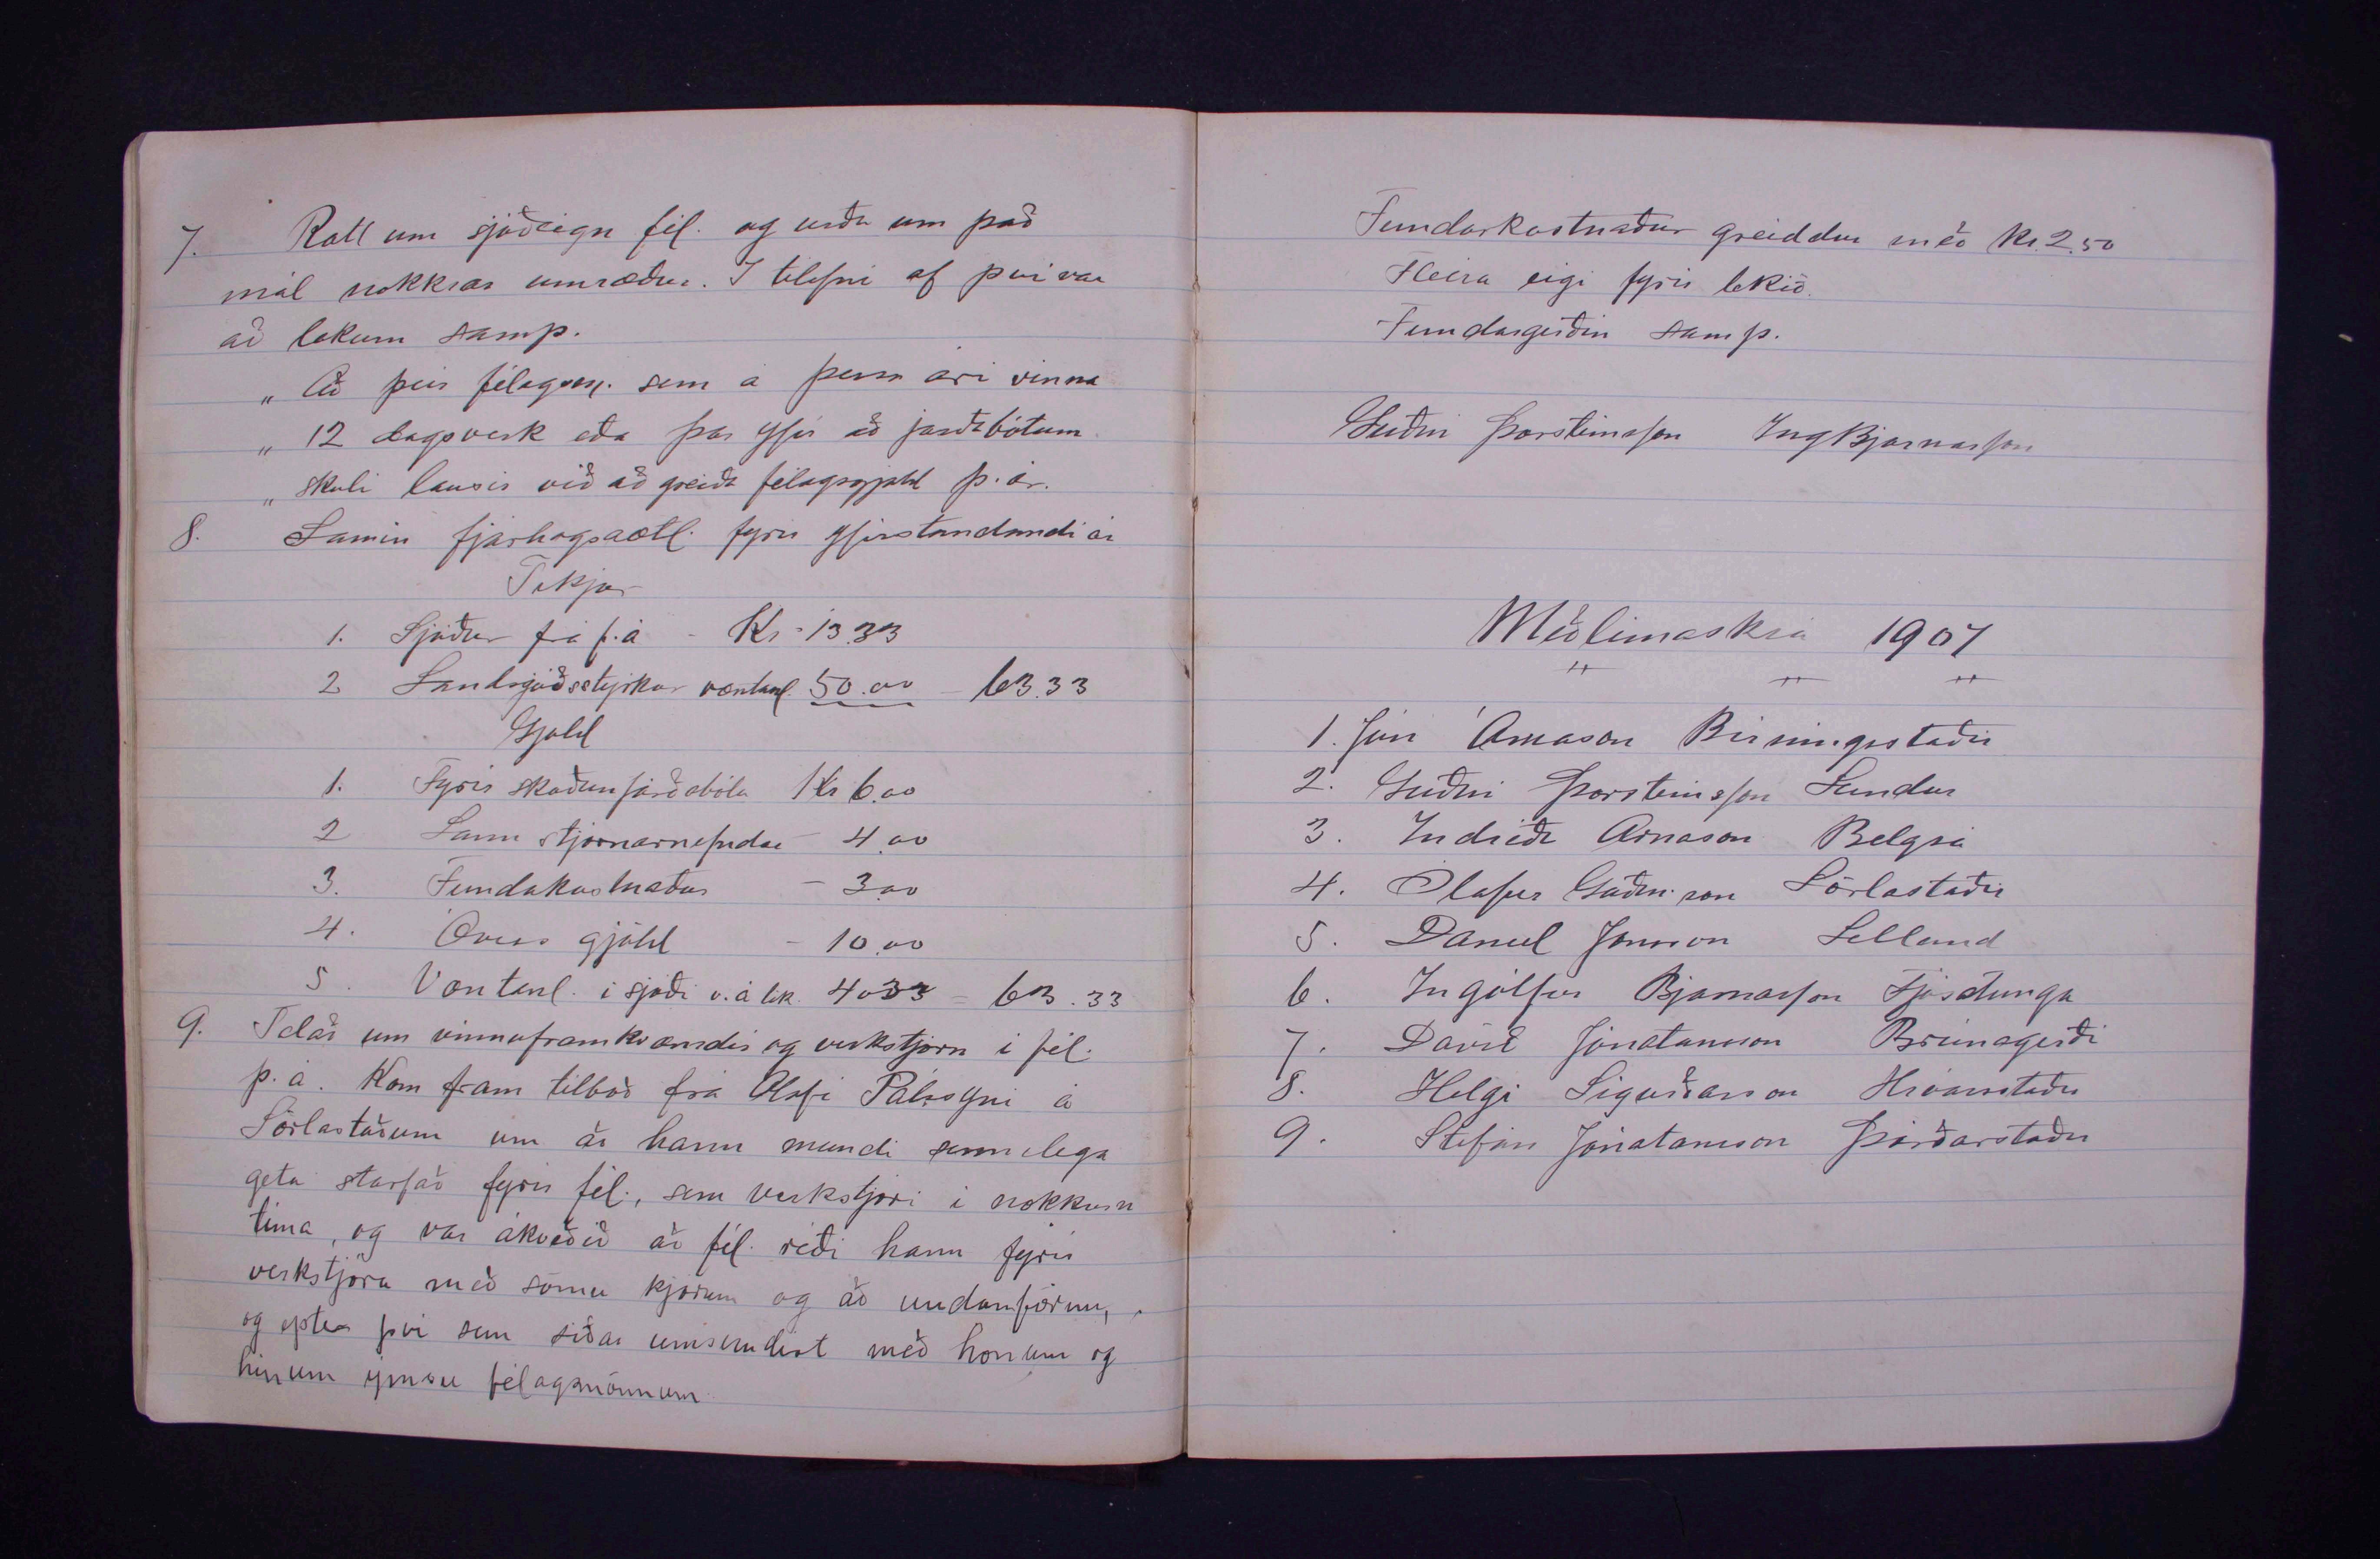 7. Rætt um sjóðeign fél. og urðu um það
mál nokkrar umræður. Í tilefni af því var
að lokum samþ.
„ Að þeir félagsm. sem á þessu ári vinna
„ 12 dagsverk eða þar yfir að jarðabótum
„ skuli lausir við að greiða félagsgjald þ. ár.
8. Samin fjárhagsáætl. fyrir yfirstandandi ár
Tekjur
1. Sjóður frá f. á - Kr - 13.33
2 Landsjóðsstyrkur væntanl. 50.00 - 63.33
Gjöld
1. Fyrir skoðun jarðabóta Kr 6.00
2 Laun stjórnarnefndar - 4.00
3. Fundakostnaður - 3.00
4. Óviss gjöld - 10.00
5. Væntanl. í sjóði v. á lok. 4033 = 63.33
9. Talað um vinnuframkvæmdir og verkstjórn í fél.
þ. á. Kom fram tilboð frá Ólafi Pálssyni á
Sörlastöðum um að hann mundi sennilega
geta starfað fyrir fél., sem verkstjóri í nokkurn
tíma, og var ákveðið að fél. réði hann fyrir
verkstjóra með sömu kjörum og að undanförnu,
og eptir því sem síðar umsemdist með honum og
hinum ýmsu félagsmönnum
Fundarkostnaður greiddur með kr. 2.50
Fleira eigi fyrir tekið.
Fundargerðin samþ.
Guðni Þorsteinsson Ing Bjarnarson
Meðlimaskrá 1907
1. Jón Árnason Birningsstaðir
2. Guðni Þorsteinsson Lundur
3. Indriði Árnason Belgsá
4. Ólafur Guðm.son Sörlastaðir
5. Daníel Jónsson Selland
6. Ingólfur Bjarnarson Fjósatunga
7. Davíð Jónatansson Brúnagerði
8. Helgi Sigurðarson Hróarsstaðir
9. Stefán Jónatansson Þórðarstaðir